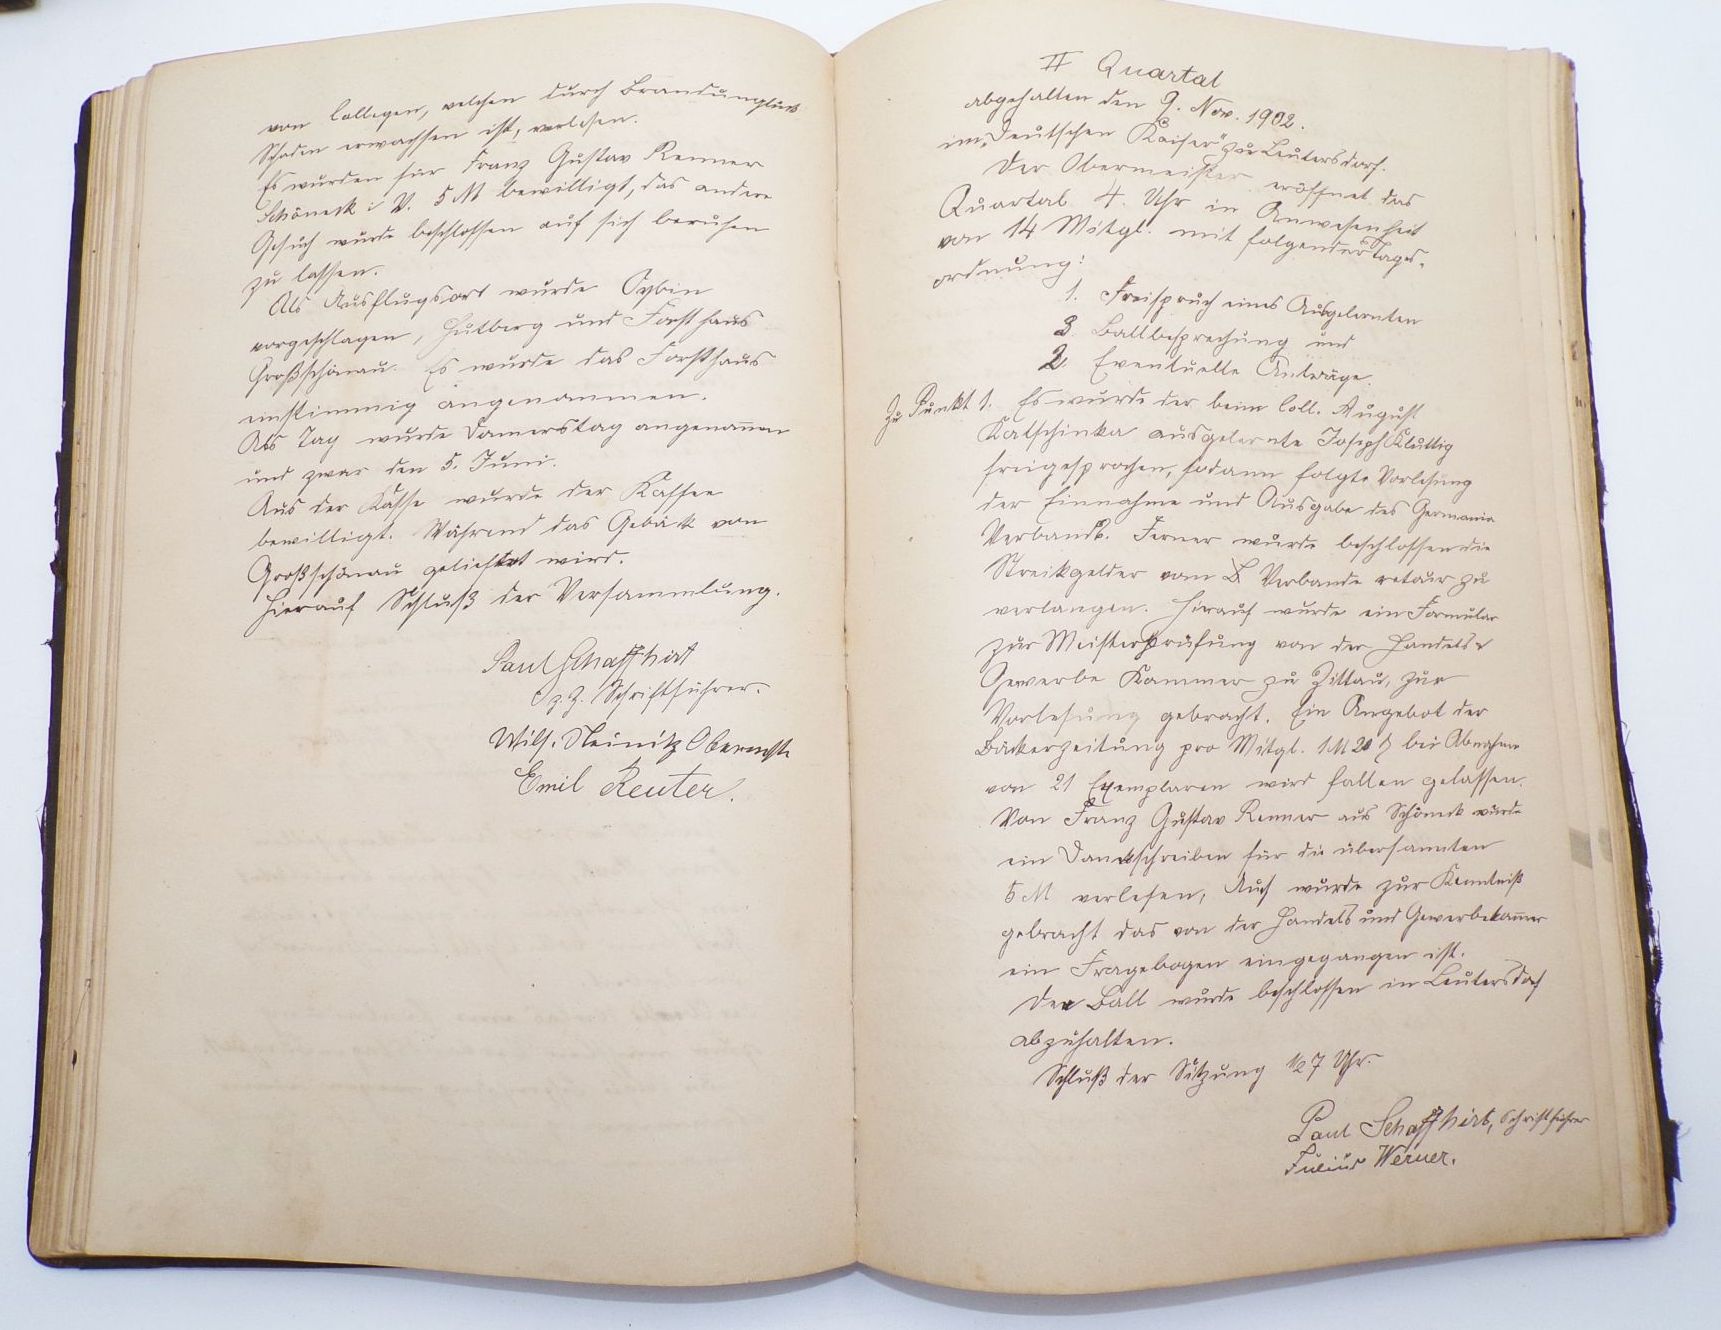 von Collegen, welchen durch Brandunglück
Schaden erwachsen ist, verlesen.
Es wurden für Franz Gustav Renner
Schöneck i V. 5 M bewilligt, das andere
Gesuch wurde beschlossen auf sich beruhen
zu lassen.
Als Ausflugsort wurde Oybin
vorgeschlagen, Hutberg und Forsthaus
Großschönau. Es wurde das Forsthaus
einstimmig angenommen.
Als Tag wurde Donnerstag angenom̅en
und zwar den 5. Juni.
Aus der Kasse wurde der Kaffee
bewilligt. Während das Gebäck von
Großschönau geliefert wird.
Hierauf Schluß der Versammlung.
Paul Schaffhirt
z. Z. Schriftführer.
Wilh. Neinitz Oberm̅str
Emil Reuter.
II Quartal
abgehalten den 9. Nov. 1902.
im „Deutschen Kaiser" zu Leutersdorf.
Der Obermeister eröffnet das
Quartal 4. Uhr in Anwesenheit
von 14 Mitgl. mit folgender Tages-
ordnung:
1. Freispruch eines Ausgelernten
3 Ballbesprechung und
2. Eventuelle Anträge.
Zu Punkt 1. Es wurde der beim Coll. August
Katschinka ausgelernte Joseph Kluttig
freigesprochen, sodann folgte Vorlesung
der Einnahme und Ausgabe des Germania
Verbands. Ferner wurde beschlossen die
Streikgelder vom B. Verbande retour zu
verlangen. Hierauf wurde ein Formular
zur Meisterprüfung von der Handels &
Gewerbe Kammer zu Zittau, zur
Vorlesung gebracht. Ein Angebot der
Bäckerzeitung pro Mitgl. 1 M 20 ₰ bei Abnahme
von 21 Exemplaren wird fallen gelassen.
Von Franz Gustav Renner aus Schöneck wurde
ein Dankschreiben für die übersannten
5 M verlesen, Auch wurde zur Kenntniß
gebracht das von der Handels und Gewerbekam̅er
ein Fragebogen eingegangen ist.
Der Ball wurde beschlossen in Leutersdorf
abzuhalten.
Schluß der Sitzung ½7 Uhr.
Paul Schaffhirt, Schriftführer
Julius Werner.